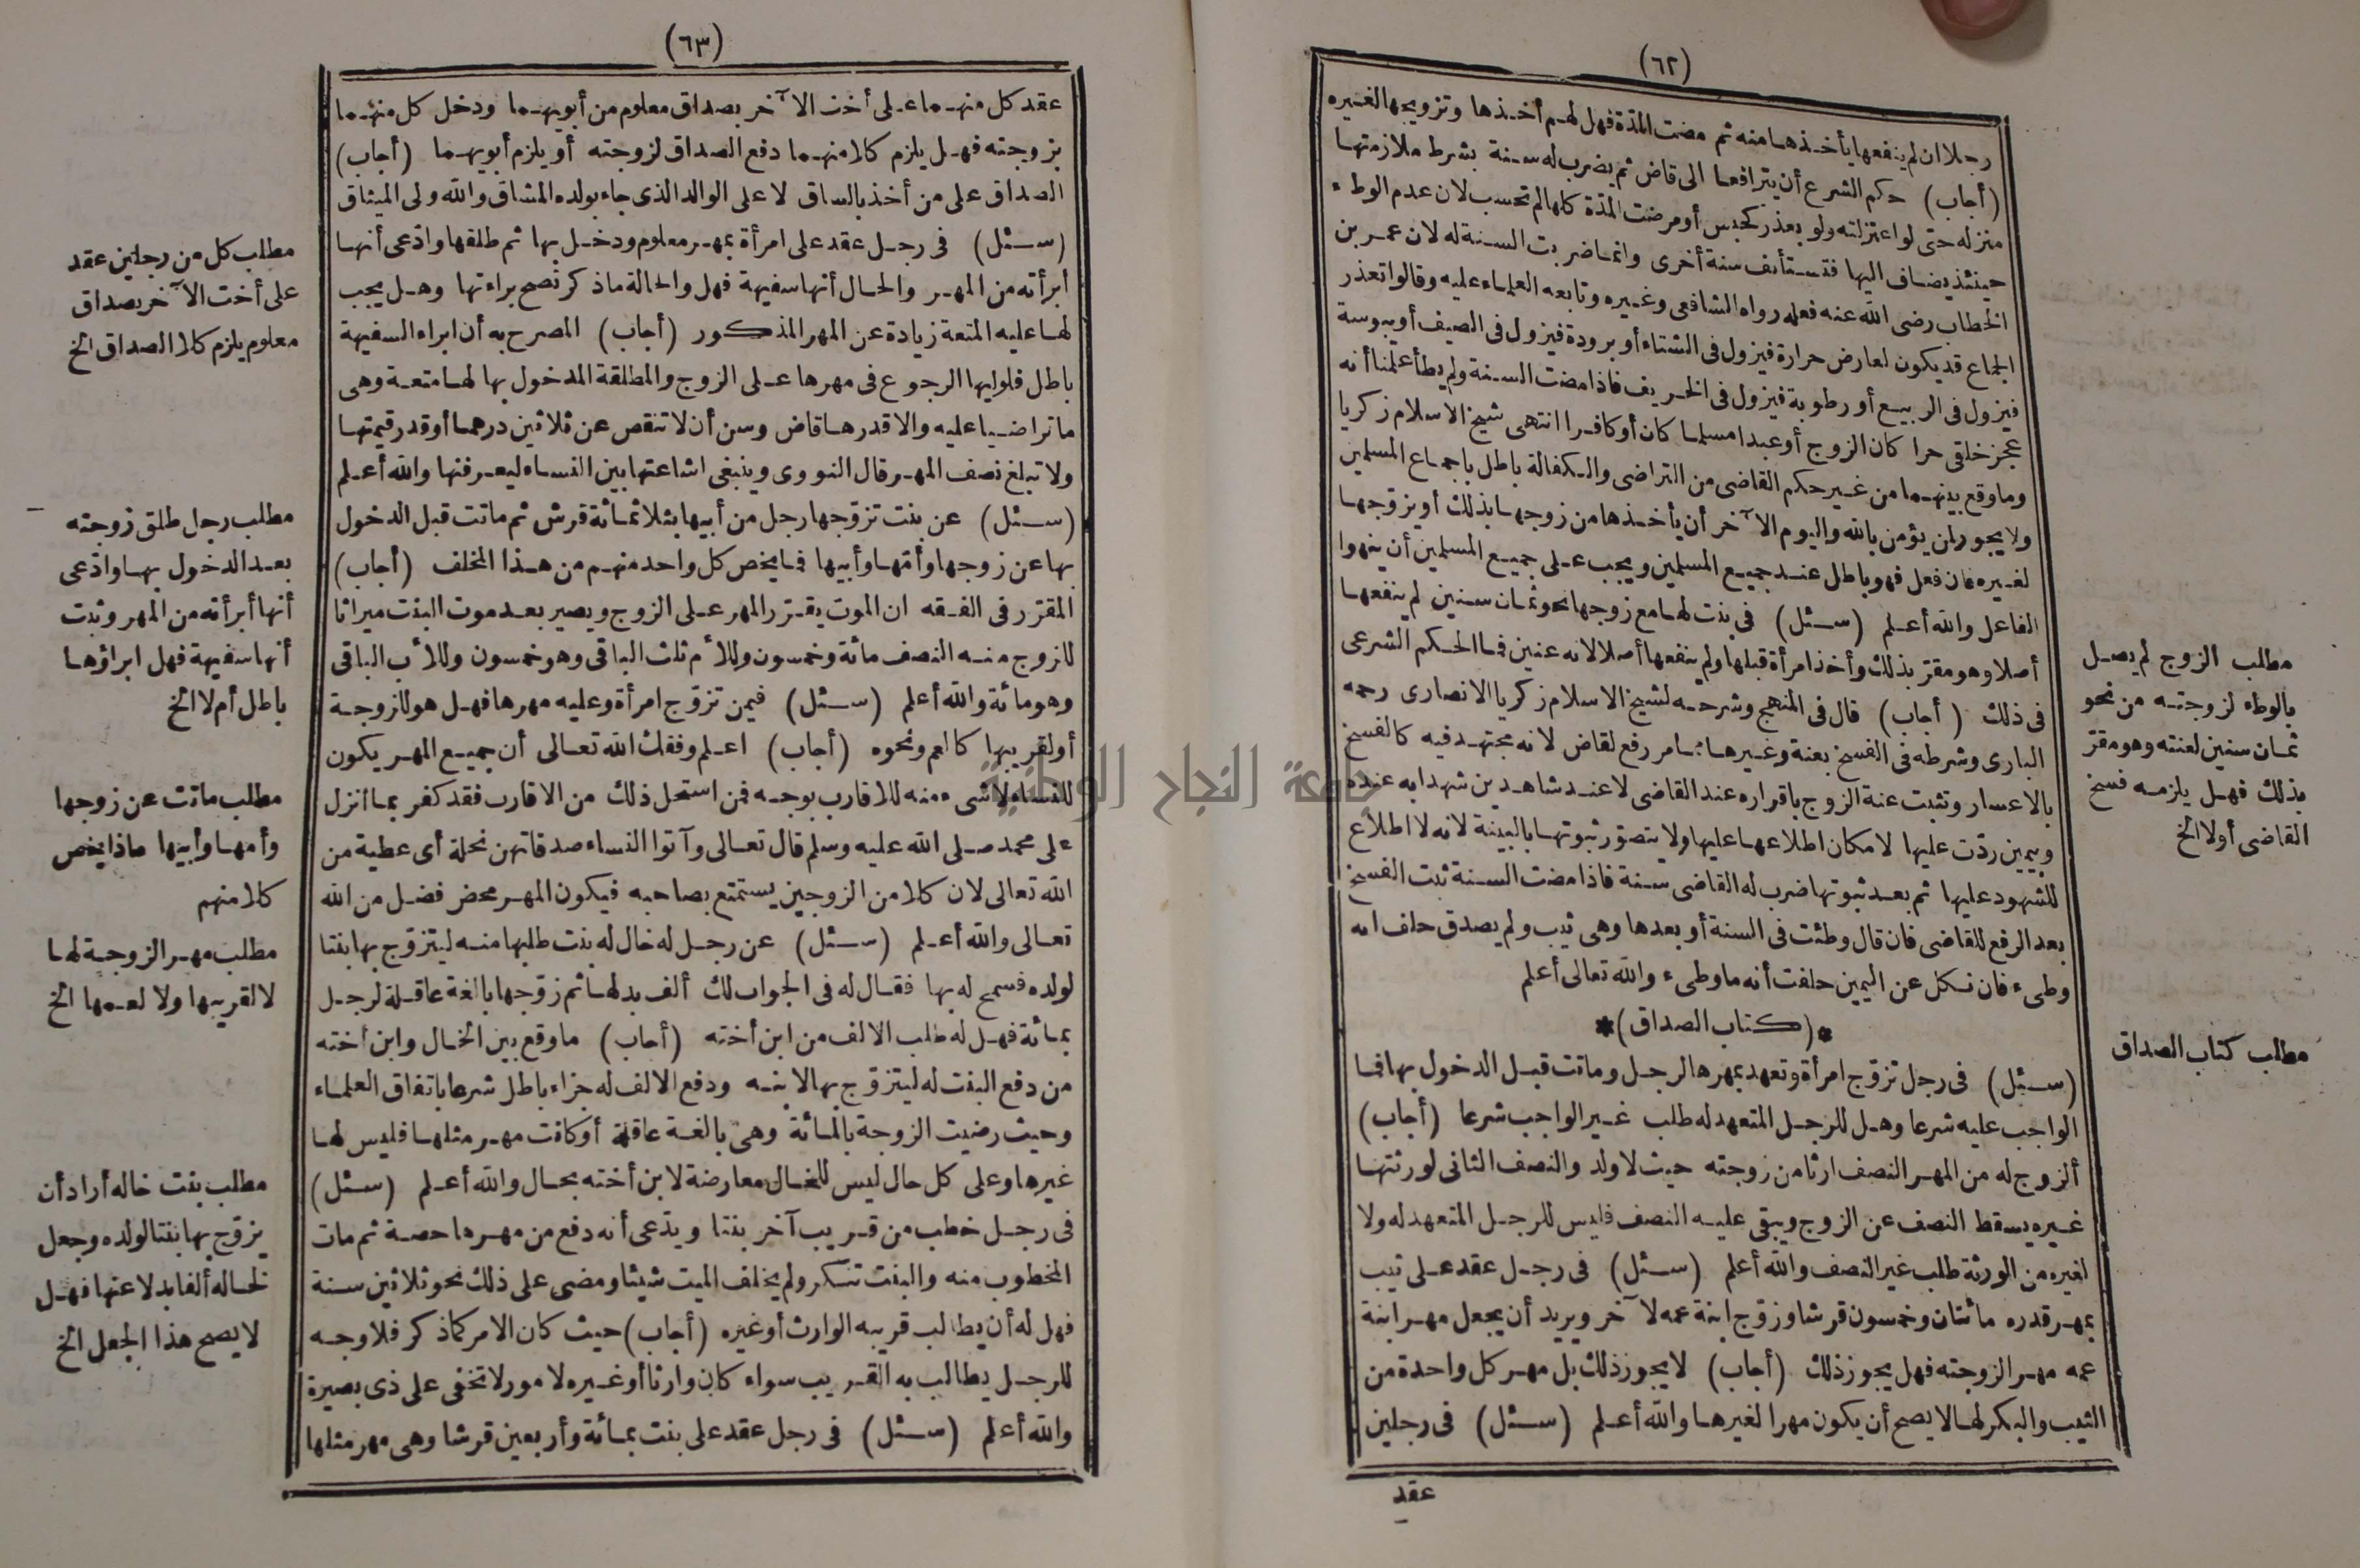 (٦٢)
رجلا ان لم ينفعها يأخذها منه ثم مضت المدة فهل لهم أخذها وتزويجها لغيره
(أجاب) حكم الشرع أن يترافعا الى قاض ثم يضرب له سنة بشرط ملازمتها
منزله حتى لو اعتزلته ولو بعذر كحبس أو مرضت المدة كلها لم تحسب لان عدم الوطء
حينئذ يضاف اليها فتستأنف سنة أخرى وانما ضربت السنة له لان عمر بن
الخطاب رضى الله عنه فعله رواه الشافعى وغيره وتابعه العلماء عليه وقالوا تعذر
الجماع قد يكون لعارض حرارة فيزول فى الشتاء أو برودة فيزول فى الصيف أو يبوسة
فيزول فى الربيع أو رطوبة فيزول فى الخريف فاذا مضت السنة ولم يطأ علمنا أنه
عجز خلقى حرا كان الزوج أو عبدا مسلما كان أو كافرا انتهى شيخ الاسلام زكريا
وما وقع بينهما من غير حكم القاضى من التراضى والكفالة باطل باجماع المسلمين
ولا يجوز لمن يؤمن بالله واليوم الآخر أن يأخذها من زوجها بذلك أو يزوجها
لغيره فان فعل فهو باطل عند جميع المسلمين ويجب على جميع المسلمين أن ينهوا
الفاعل والله أعلم (سئل) فى بنت لها مع زوجها نحو ثمان سنين لم ينفعها
أصلا وهو مقر بذلك وأخذ امرأة قبلها ولم ينفعها أصلا لانه عنين فما الحكم الشرعى
فى ذلك (أجاب) قال فى المنهج وشرحه لشيخ الاسلام زكريا الانصارى رحمه
البارى وشرطه فى الفسخ بعنة وغيرها مما مر رفع لقاض لانه مجتهد فيه كالفسخ
بالاعسار وتثبت عنة الزوج باقراره عند القاضى لا عند شاهدين شهدا به عنده
وبيمين ردت عليها لامكان اطلاعها عليها ولا يتصور ثبوتها بالبينة لانه لا اطلاع
للشهود عليها ثم بعد ثبوتها ضرب له القاضى سنة فاذا مضت السنة ثبت الفسخ
بعد الرفع للقاضى فان قال وطئت فى السنة أو بعدها وهى ثيب ولم يصدق حلف انه
وطىء فان نكل عن اليمين حلفت أنه ما وطىء والله تعالى أعلم
*(كتاب الصداق)*
(سئل) فى رجل تزوج امرأة وتعهد بمهرها لرجل وماتت قبل الدخول بها فما
الواجب عليه شرعا وهل للرجل المتعهد له طلب غير الواجب شرعا (أجاب)
ألزوج له من المهر النصف ارثا من زوجته حيث لا ولد والنصف الثانى لورثتها
غيره يسقط النصف عن الزوج ويبقى عليه النصف فليس للرجل المتعهد له ولا
لغيره من الورثة طلب غير النصف والله أعلم (سئل) فى رجل عقد على ثيب
بمهر قدره مائتان وخمسون قرشا وزوج ابنة عمه لآخر ويريد أن يجعل مهر ابنة
عمه مهر الزوجته فهل يجوز ذلك (أجاب) لا يجوز ذلك بل مهر كل واحدة من
الثيب والبكر لها لا يصح أن يكون مهرا لغيرها والله أعلم (سئل) فى رجلين
عقد
مطلب الزوج لم يصل
بالوطء لزوجته من نحو
ثمان سنين لعنته وهو مقر
بذلك فهل يلزمه فسخ
القاضى أولا الخ
مطلب كتاب الصداق
(٦٣)
عقد كل منهما على أخت الآخر بصداق معلوم من أبويهما ودخل كل منهما
بزوجته فهل يلزم كلا منهما دفع الصداق لزوجته أو يلزم أبويهما (أجاب)
الصداق على من أخذ بالساق لا على الوالد الذى جاء بولده المشاق والله ولى الميثاق
(سئل) فى رجل عقد على امرأة بمهر معلوم ودخل بها ثم طلقها وادعى أنها
أبرأته من المهر والحال أنها سفيهة فهل والحالة ماذكر تصح براءتها وهل يجب
لها عليه المتعة زيادة عن المهر المذكور (أجاب) المصرح به أن ابراء السفيهة
باطل فلوليها الرجوع فى مهرها على الزوج والمطلقة المدخول بها لها متعة وهى
ما تراضيا عليه والا قدرها قاض وسن أن لا تنقص عن ثلاثين درهما أو قدر قيمتها
ولا تبلغ نصف المهر قال النووى وينبغى اشاعتها بين النساء ليعرفنها والله أعلم
(سئل) عن بنت تزوجها رجل من أبيها بثلاثمائة قرش ثم ماتت قبل الدخول
بها عن زوجها وأمها وأبيها فما يخص كل واحد منهم من هذا المخلف (أجاب)
المقرر فى الفقه ان الموت يقرر المهر على الزوج ويصير بعد موت البنت ميراثا
للزوج منه النصف مائة وخمسون وللأم ثلث الباقى وهو خمسون وللأب الباقى
وهو مائة والله أعلم (سئل) فيمن تزوج امرأة وعليه مهرها فهل هو للزوجة
أو لقريبها كالعم ونحوه (أجاب) اعلم وفقك الله تعالى أن جميع المهر يكون
للنساء لا شىء منه للاقارب بوجه فمن استحل ذلك من الاقارب فقد كفر بما أنزل
على محمد صلى الله عليه وسلم قال تعالى وآتوا النساء صدقاتهن نحلة أى عطية من
الله تعالى لان كلا من الزوجين يستمتع بصاحبه فيكون المهر محض فضل من الله
تعالى والله أعلم (سئل) عن رجل له خال له بنت طلبها منه ليتزوج بها بنتا
لولده فسمح له بها فقال له فى الجواب لك ألف بدلها ثم زوجها بالغة عاقلة لرجل
بمائة فهل له طلب الالف من ابن أخته (أجاب) ما وقع بين الخال وابن أخته
من دفع البنت له ليتزوج بها لابنه ودفع الالف له جزاء باطل شرعا باتفاق العلماء
وحيث رضيت الزوجة بالمائة وهى بالغة عاقلة أو كانت مهر مثلها فليس لها
غيرها وعلى كل حال ليس للخال معارضة لابن أخته بحال والله أعلم (سئل)
فى رجل خطب من قريب آخر بنتا ويدعى أنه دفع من مهرها حصة ثم مات
المخطوب منه والبنت تنكر ولم يخلف الميت شيئا ومضى على ذلك نحو ثلاثين سنة
فهل له أن يطالب قريبه الوارث أو غيره (أجاب) حيث كان الامر كما ذكر فلا وجه
للرجل يطالب به القريب سواء كان وارثا أو غيره لامور لا تخفى على ذى بصيرة
والله أعلم (سئل) فى رجل عقد على بنت بمائة وأربعين قرشا وهى مهر مثلها
مطلب كل من رجلين عقد
على أخت الآخر بصداق
معلوم يلزم كلا الصداق الخ
مطلب رجل طلق زوجته
بعد الدخول بها وادعى
أنها أبرأته من المهر وثبت
أنها سفيهة فهل ابراؤها
باطل أم لا الخ
مطلب ماتت عن زوجها
وأمها وأبيها ماذا يخص
كلا منهم
مطلب مهر الزوجة لها
لا لقريبها ولا لعمها الخ
مطلب بنت خاله أراد أن
يزوج بها بنتا لولده وجعل
لخاله ألفا بدلا عنها فهل
لا يصح هذا الجعل الخ
جامعة النجاح الوطنية